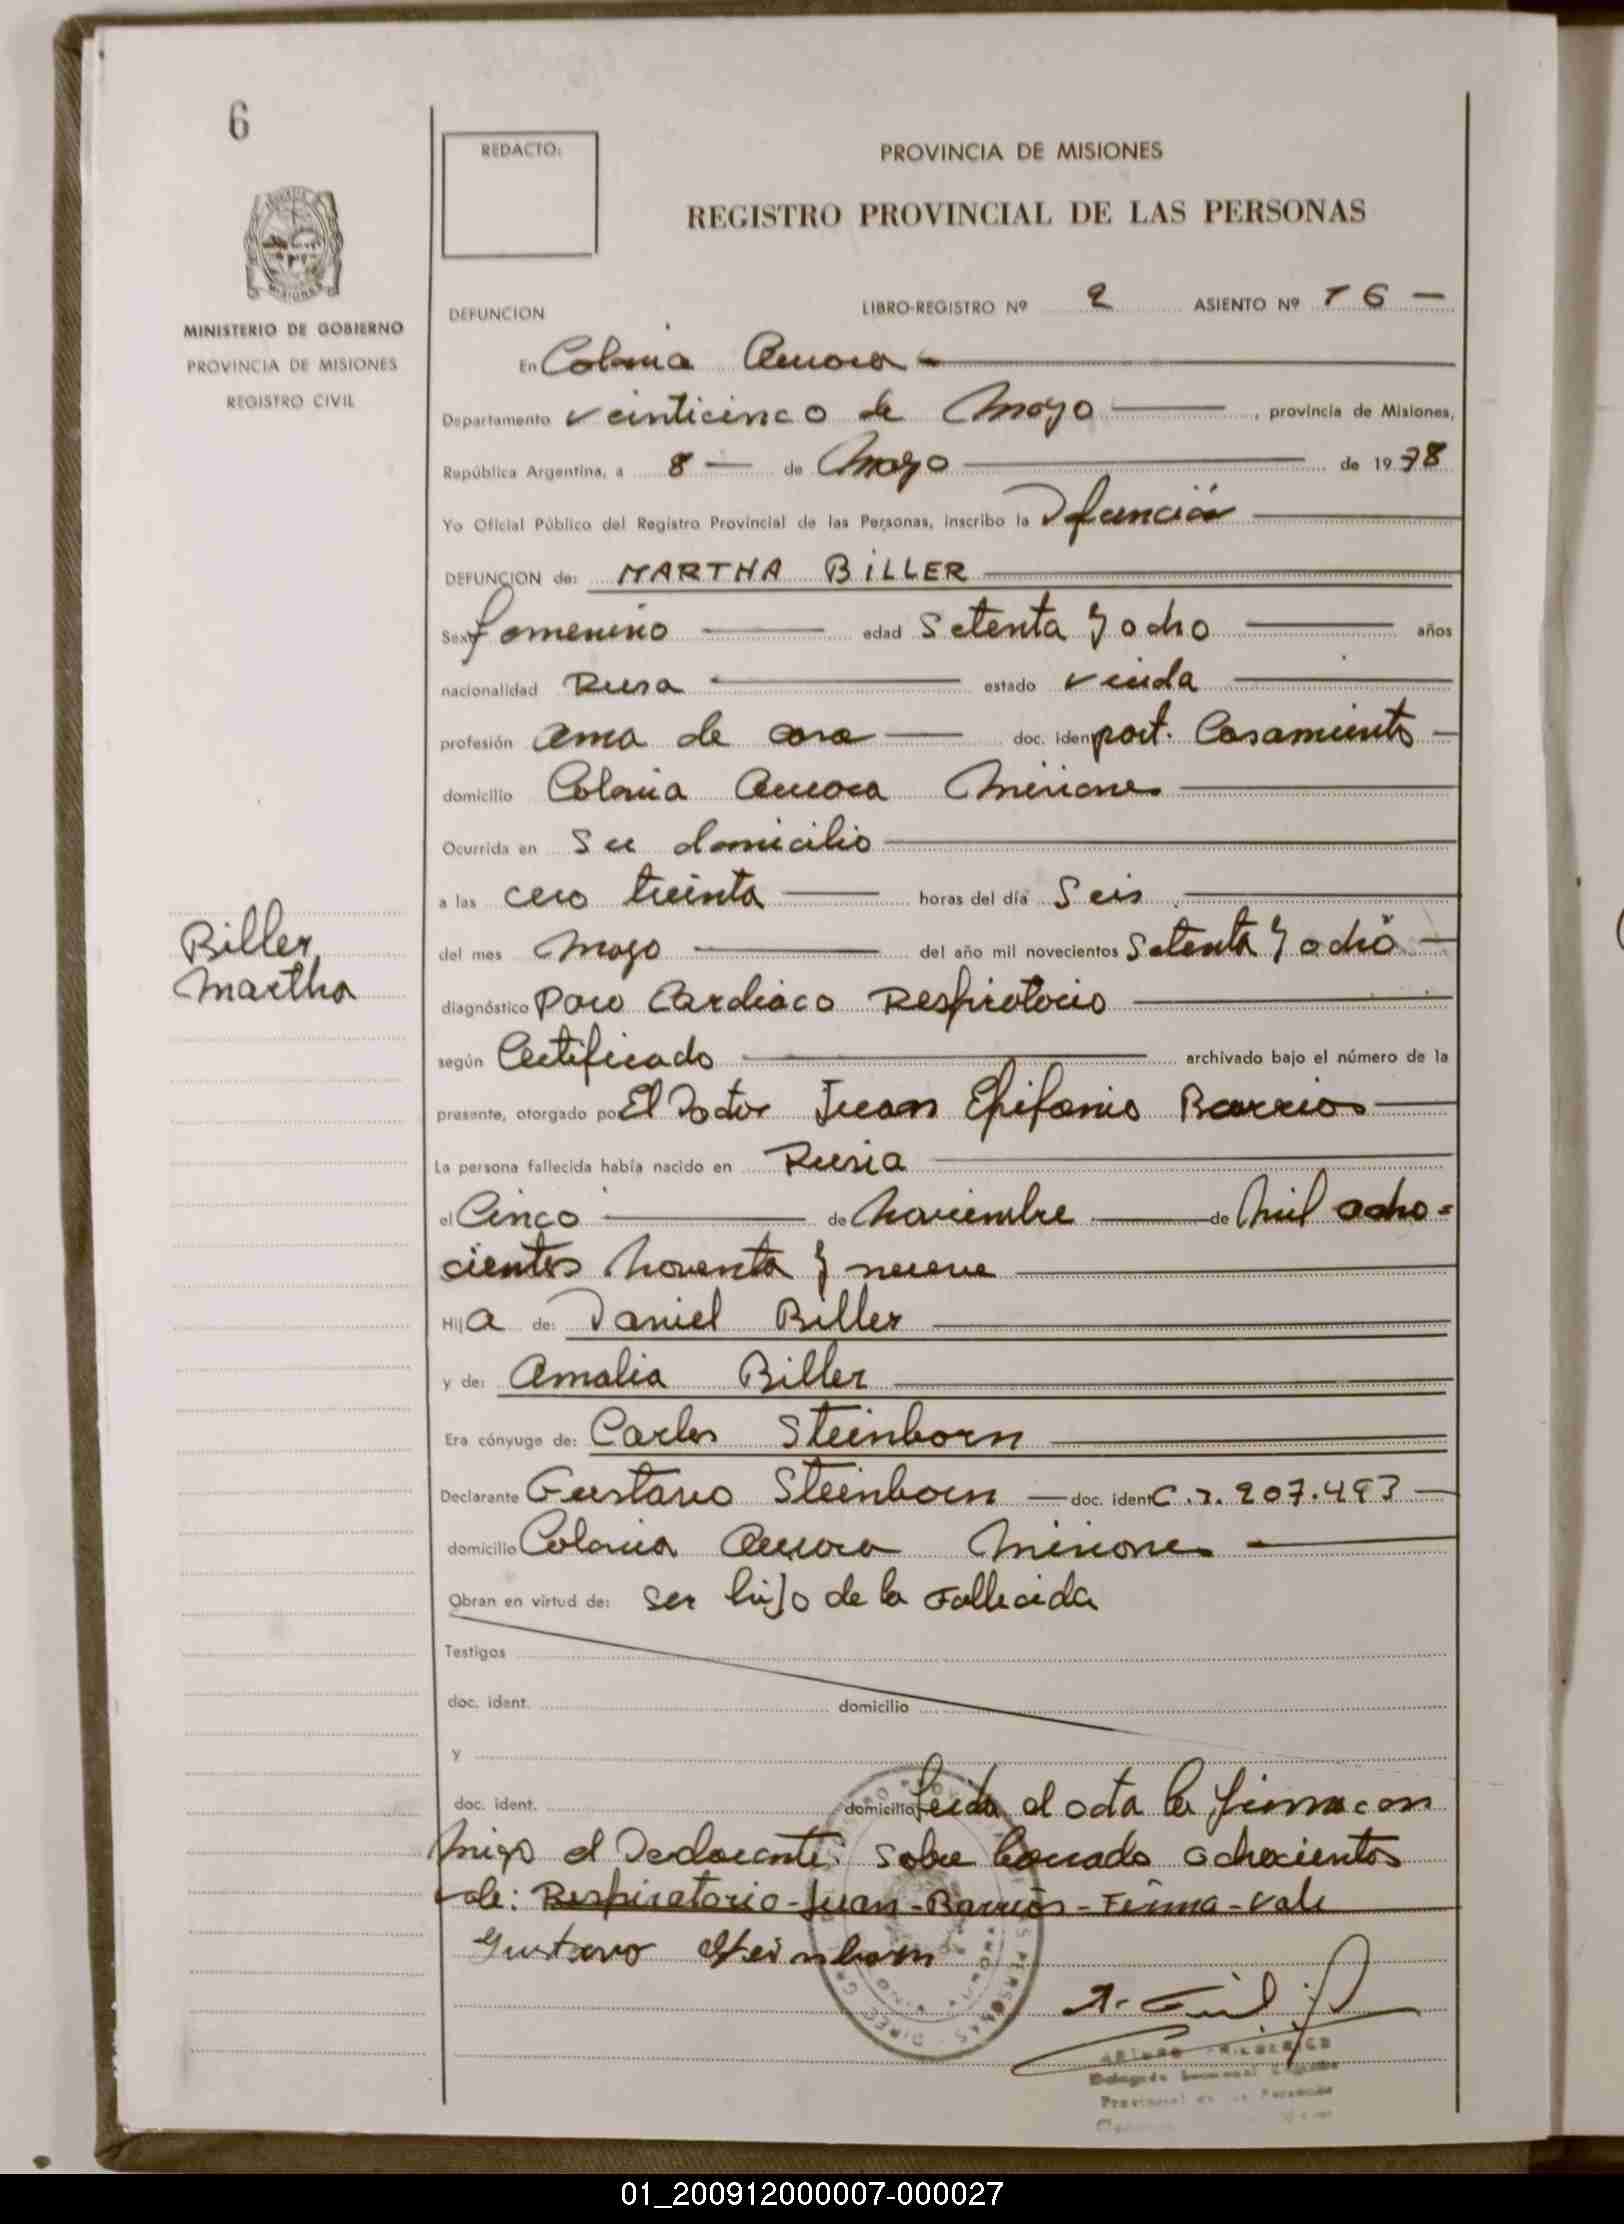 6
REDACTO:
PROVINCIA DE MISIONES
REGISTRO PROVINCIAL DE LAS PERSONAS
MISIONES
MINISTERIO DE GOBIERNO
PROVINCIA DE MISIONES
REGISTRO CIVIL
DEFUNCION LIBRO-REGISTRO Nº 2 ASIENTO Nº 16 —
En Colonia Aurora —
Departamento Veinticinco de Mayo — , provincia de Misiones,
República Argentina, a 8 — de Mayo — de 1978
Yo Oficial Público del Registro Provincial de las Personas, inscribo la Defunción —
DEFUNCION de: MARTHA BILLER —
Sexo femenino — edad Setenta y ocho — años
nacionalidad Rusa — estado viuda —
profesión ama de casa — doc. iden part. Casamiento —
domicilio Colonia Aurora Misiones —
Ocurrida en Su domicilio —
a las cero treinta — horas del día Seis —
del mes Mayo — del año mil novecientos Setenta y ocho —
Biller,
Martha
diagnóstico Paro Cardiaco Respiratorio —
según Certificado — archivado bajo el número de la
presente, otorgado por El Doctor Juan Epifanio Barrios —
La persona fallecida había nacido en Rusia —
el Cinco — de Noviembre — de Mil ocho=
cientos Noventa y nueve —
Hija de: Daniel Biller —
y de: Amalia Biller —
Era cónyuge de: Carlos Steinborn —
Declarante Gustavo Steinborn — doc. ident C.I. 207.493 —
domicilio Colonia Aurora Misiones —
Obran en virtud de: ser hijo de la Fallecida
Testigos
doc. ident. domicilio
y
doc. ident. domicilio Leida el acta la firma con
migo el Declarante. Sobre borrado ochocientos
vale: Respiratorio-Juan-Barrios-Firma-Vale
Gustavo Steinborn
Provincial de las Personas
01_200912000007-000027